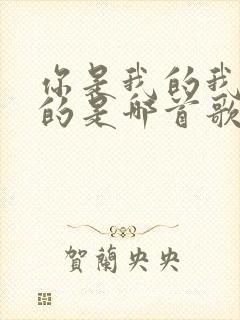 你是我的我
的是哪首歌
賀蘭央央